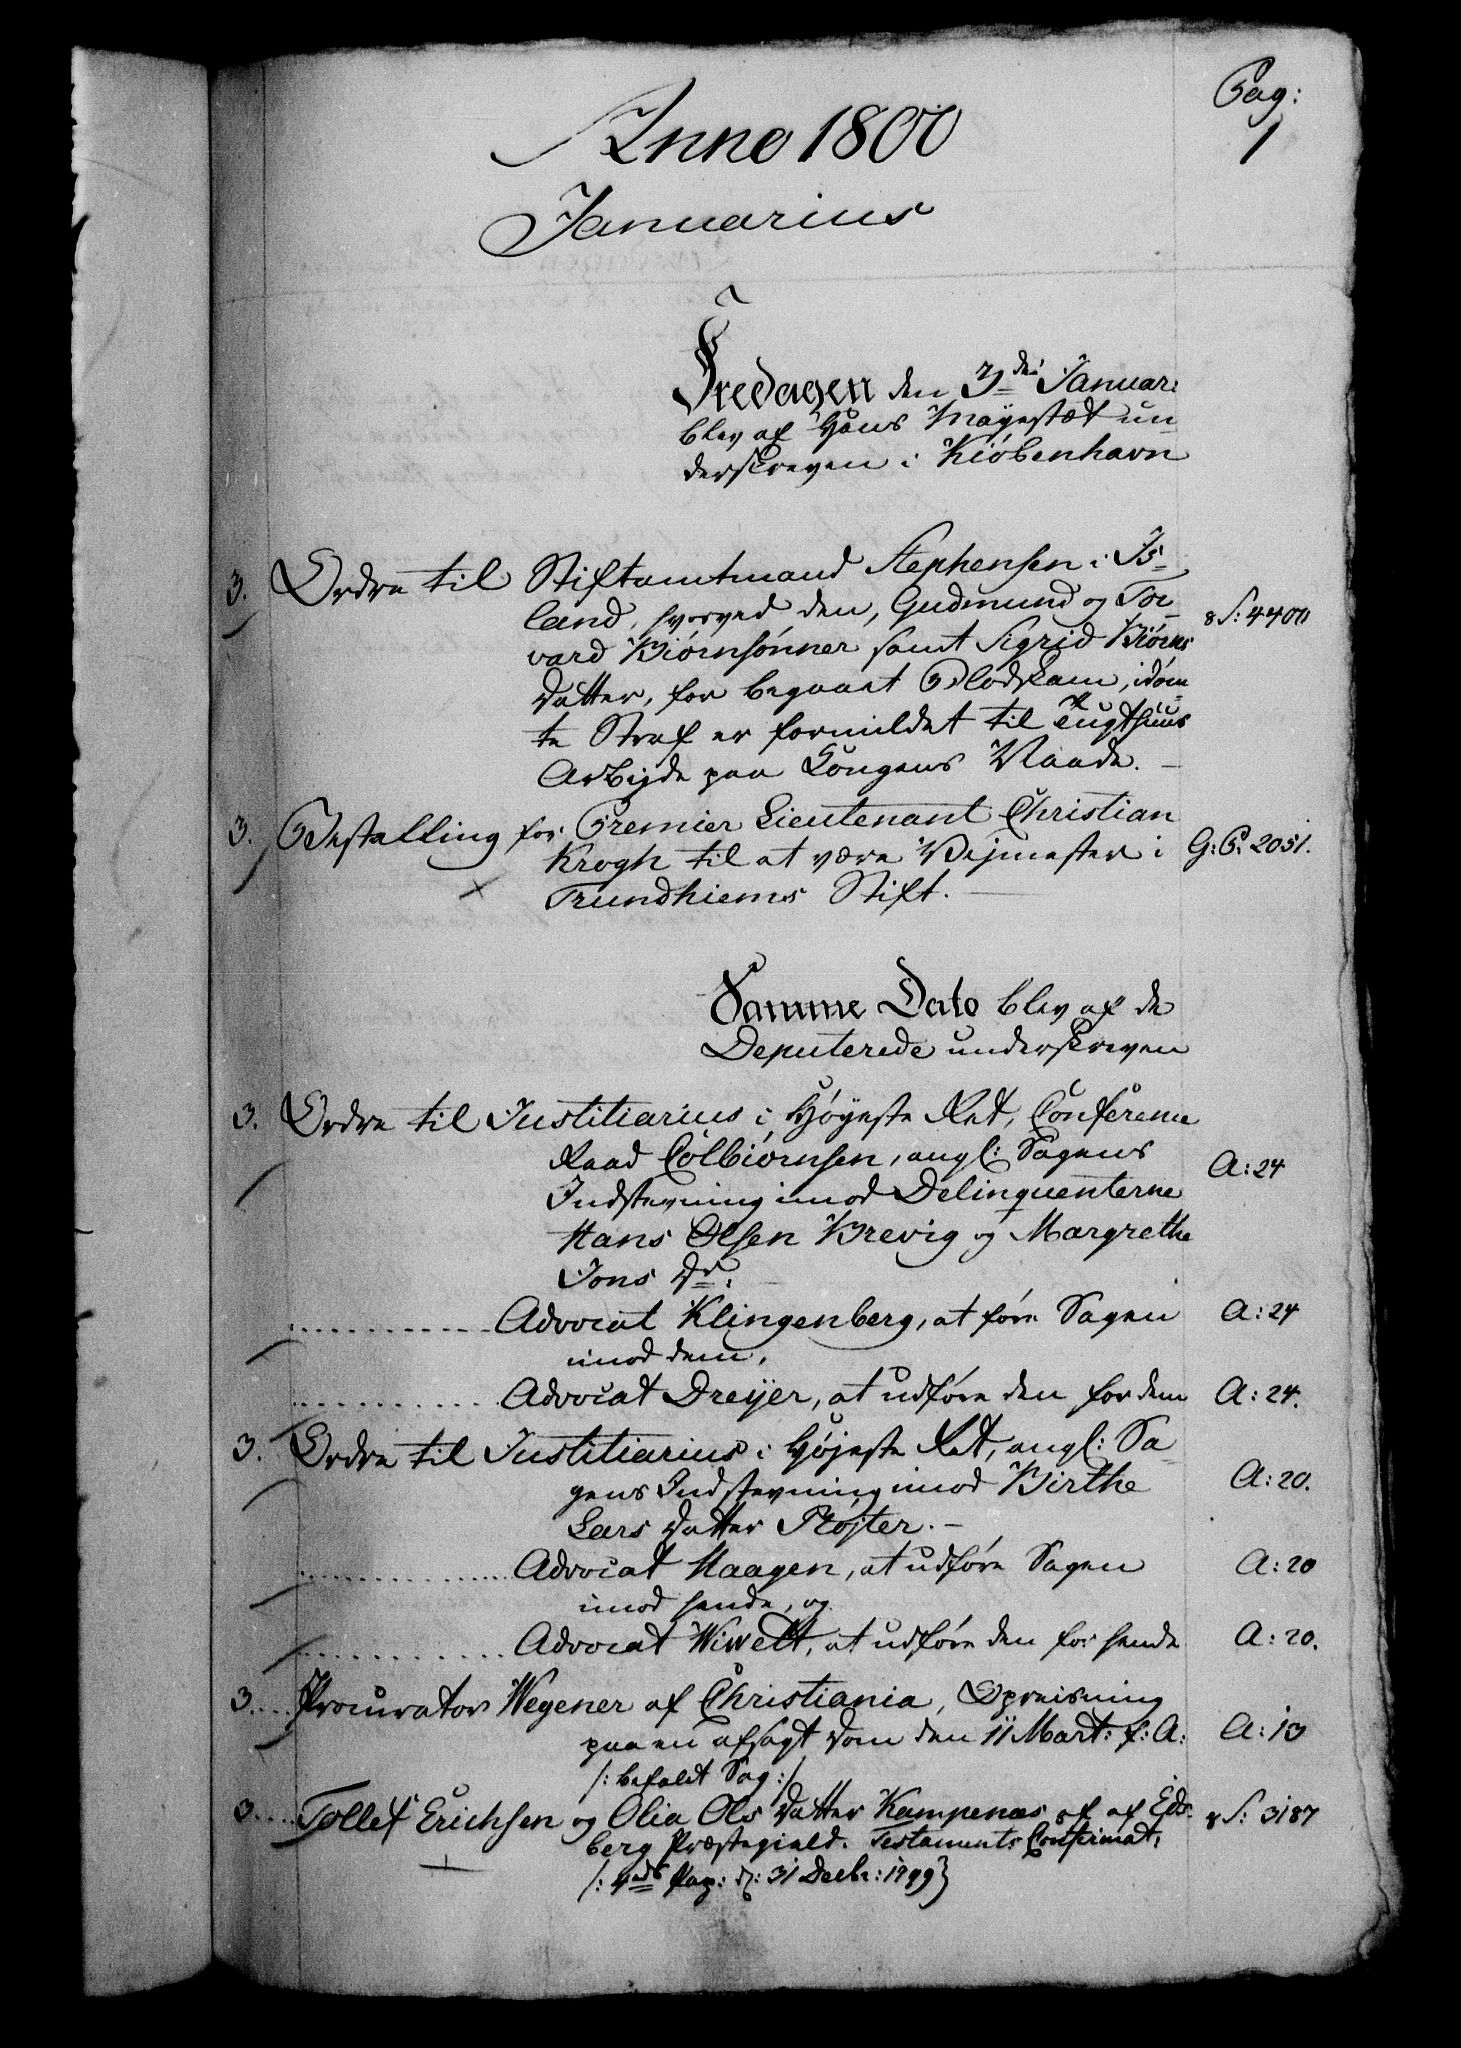 Pag:
1
Anno 1800
Januarius
Fredagen den 3die Januar:
blev af Hans Mayestæt un-
derskreven i Kiøbenhavn
3. Ordre til Stiftamtmand Stephensen i Is-
land, hvorved den, Gudmund og Tor-
vard Biørnsønner samt Sigrid Biørns
Datter, for begaaet Blodskam, idøm-
te Straf er formildet til Tugthuus
Arbejde paa Kongens Naade. —
8 S: 4400
3. Bestalling for Premier Lieutenant Christian
Krogh til at være Vejmester i
Trundhiems Stift. —
G: P: 2051.
Samme Dato blev af de
Deputerede underskreven
3. Ordre til Justitiarius i Høyeste Ret, Conference
Raad Colbiørnsen, angl: Sagens
Indstevning imod Delinquenterne
Hans Olsen Brevig og Margrethe
Jons Dr.
A: 24
Advocat Klingenberg, at føre Sagen
imod dem.
A: 24
Advocat Dreyer, at udføre den for dem
A: 24.
3. Ordre til Justitiarius i Højeste Ret, angl: Sa-
gens Indstevning imod Birthe
Lars Datter Røjter. —
A: 20.
Advocat Haagen, at udføre Sagen
imod hende, og
A: 20
Advocat Wiwett, at udføre den for hende
A: 20.
3. Procurator Wegener af Christiania, Opreisning
paa en afsagt Dom den 11 Mart: f: A:
/: befalet Sag :/
A: 13
3. Tollef Erichsen og Olia Ols Datter Kampenæs af Eds-
berg Præstegield. Testaments Confirmat:
/: 4de Pag: d: 31 Decbr: 1799 :/
8 S: 3187